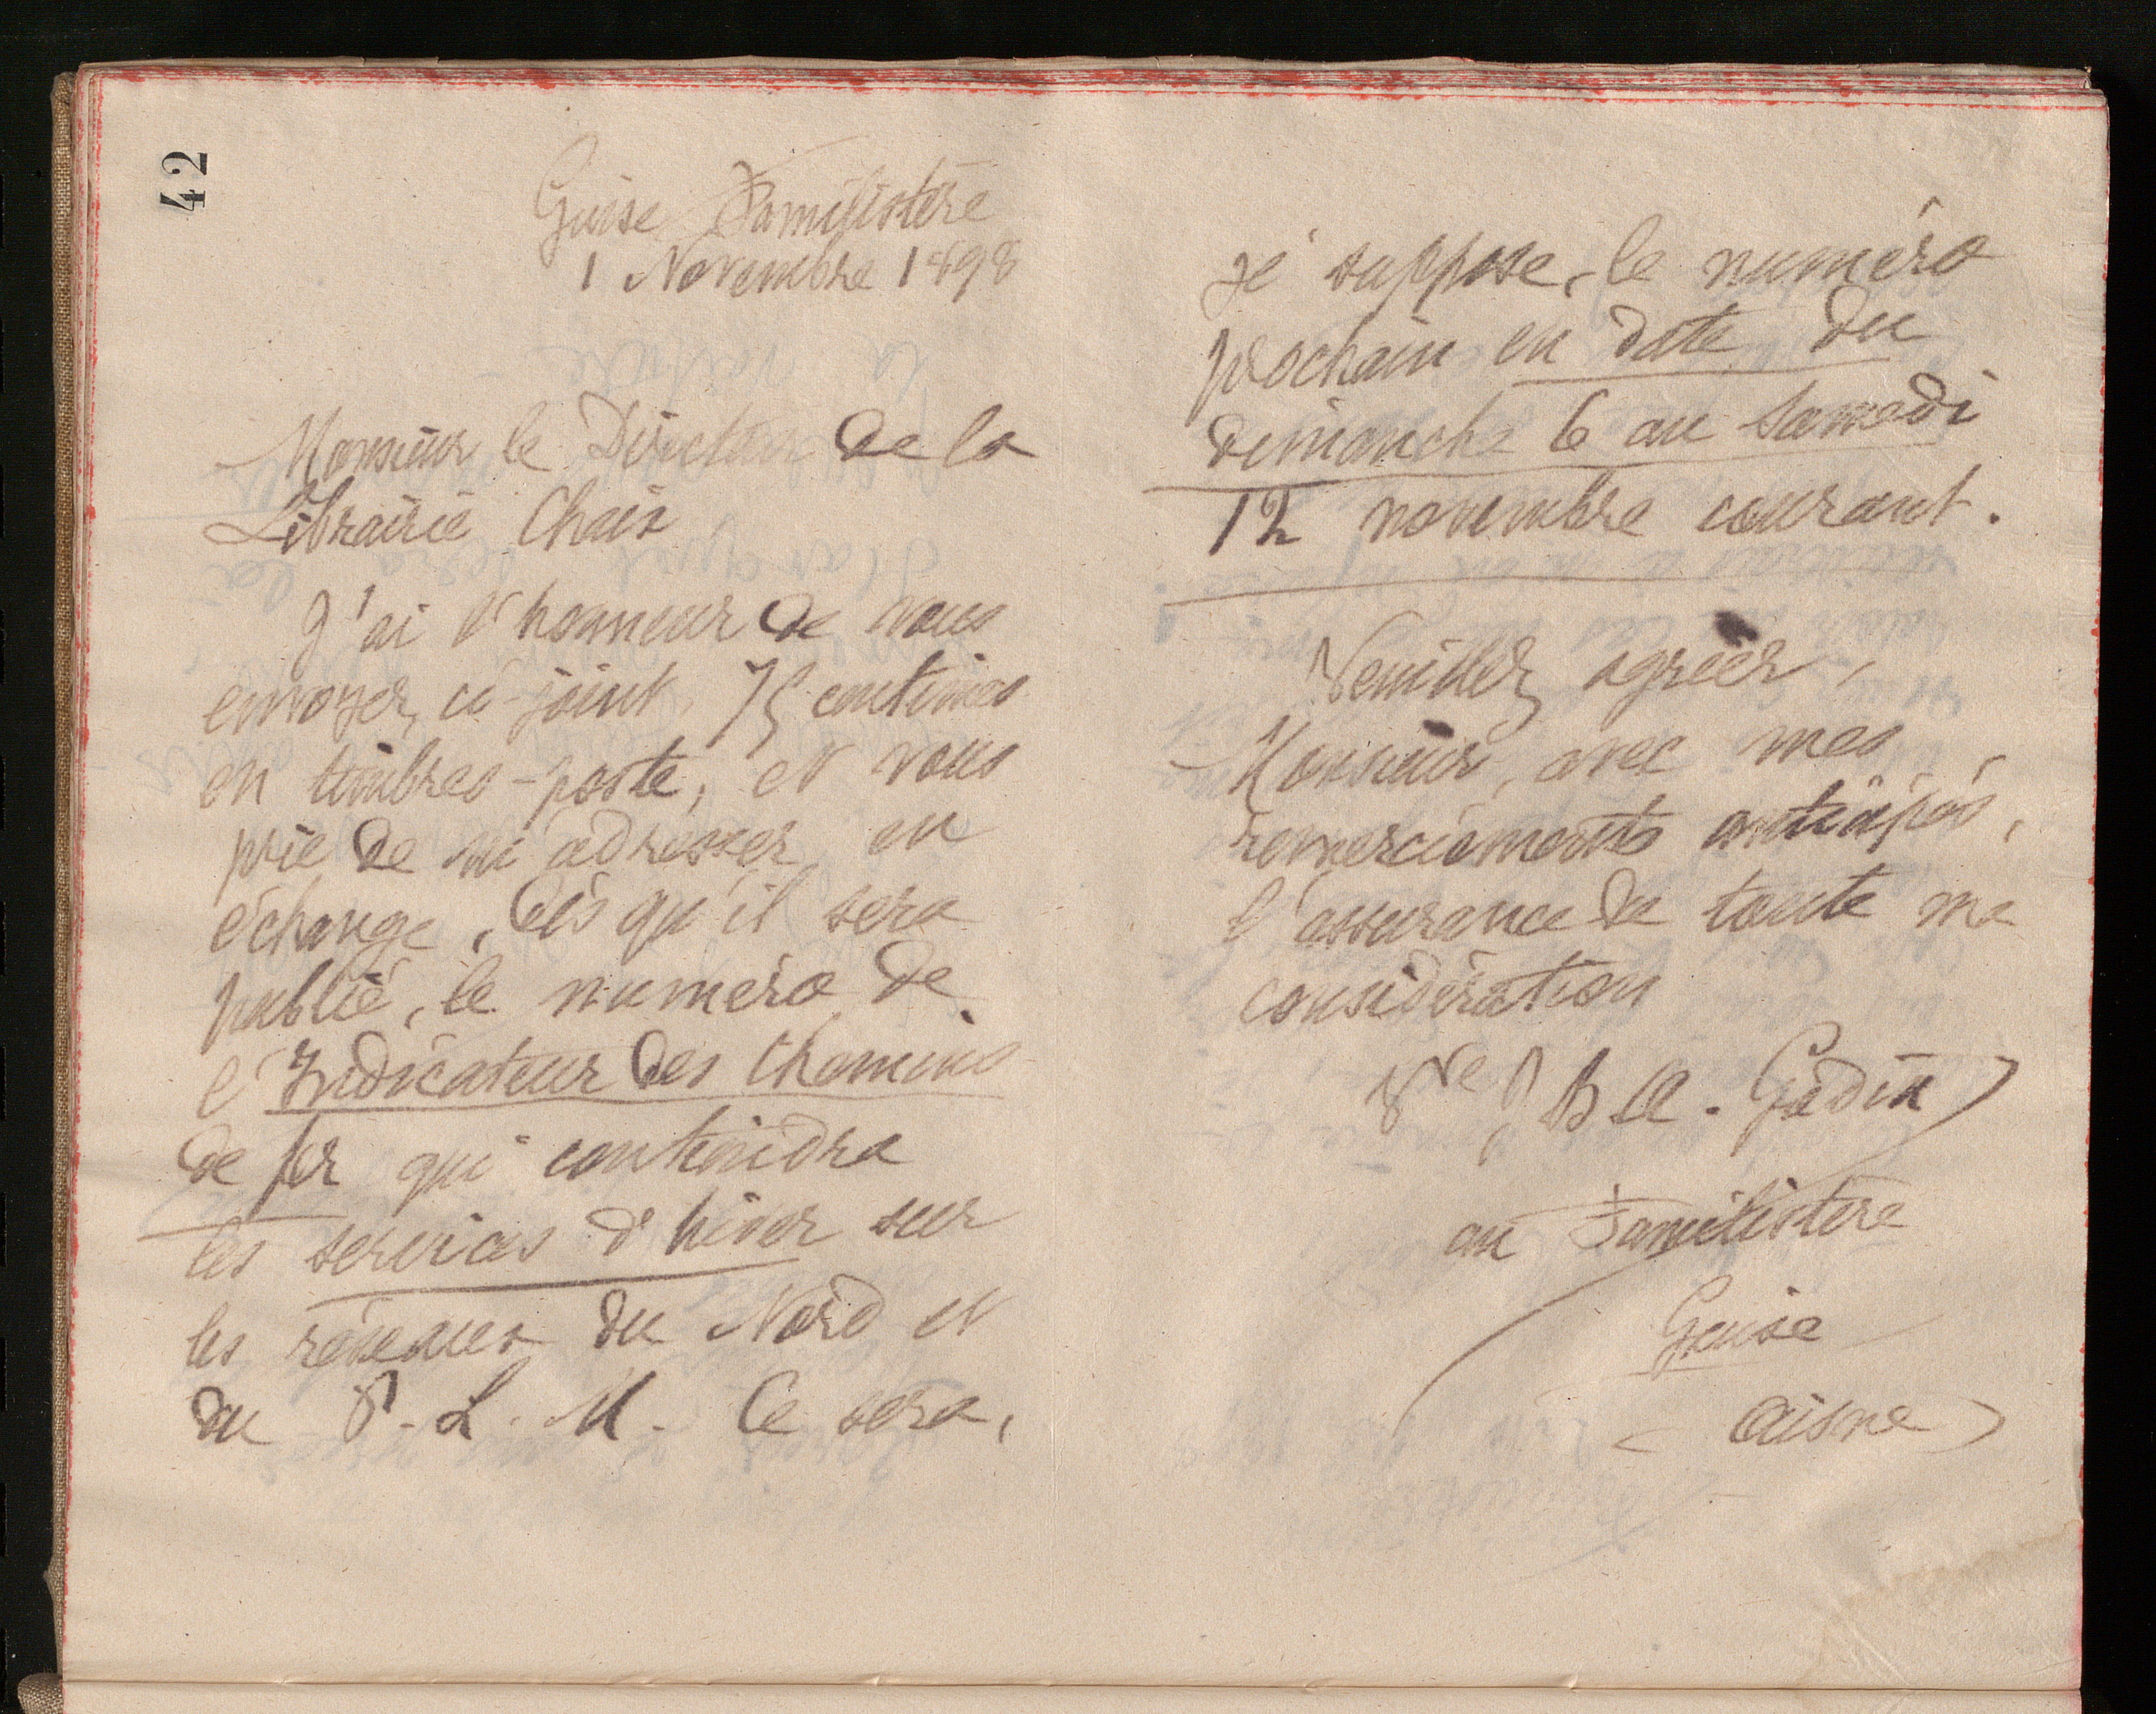 42
Guise Familistère
1 Novembre 1898
Monsieur le Directeur de la
Librairie Chaix
J'ai l'honneur de vous
envoyer, ci-joint, 75 centimes
en timbres-poste, et vous
prie de m'adresser en
échange, dès qu'il sera
publié, le numéro de
l'Indicateur des Chemins
de fer qui contiendra
les services d'hiver sur
les réseaux du Nord et
du P. L. M. Ce sera,
je suppose, le numéro
prochain en date du
dimanche 6 au samedi
12 novembre courant.
Veuillez agréer,
Monsieur, avec mes
remerciements anticipés,
l'assurance de toute ma
considération
Vve J Bte A. Godin
au Familistère
Guise
(Aisne)